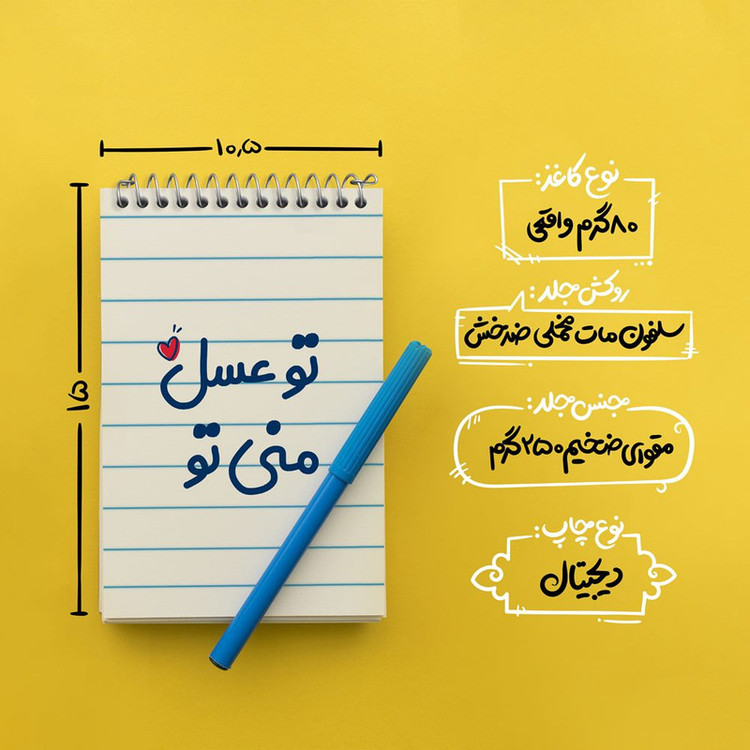 ۱۰,۵
۱۵
تو عسل
منی تو
نوع کاغذ:
۸۰ گرم واقعی
روکش جلد:
سلفون مات مخملی ضدخش
جنس جلد:
مقوای ضخیم ۲۵۰ گرم
نوع چاپ:
دیجیتال